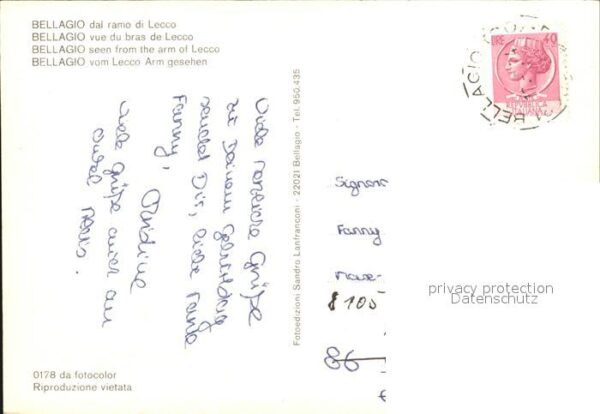 BELLAGIO dal ramo di Lecco
BELLAGIO vue du bras de Lecco
BELLAGIO seen from the arm of Lecco
BELLAGIO vom Lecco Arm gesehen
LIRE 40
REPVBBLICA
ITALIANA
BELLAGIO
Fotoedizioni Sandro Lanfranconi - 22021 Bellagio - Tel. 950.435
Viele herzliche Grüße
zu Deinem Geburtstag
sendet Dir, liebe Tante
Fanny,
Viele Grüße auch an
Onkel
Fanny
8100
86
privacy protection
Datenschutz
0178 da fotocolor
Riproduzione vietata